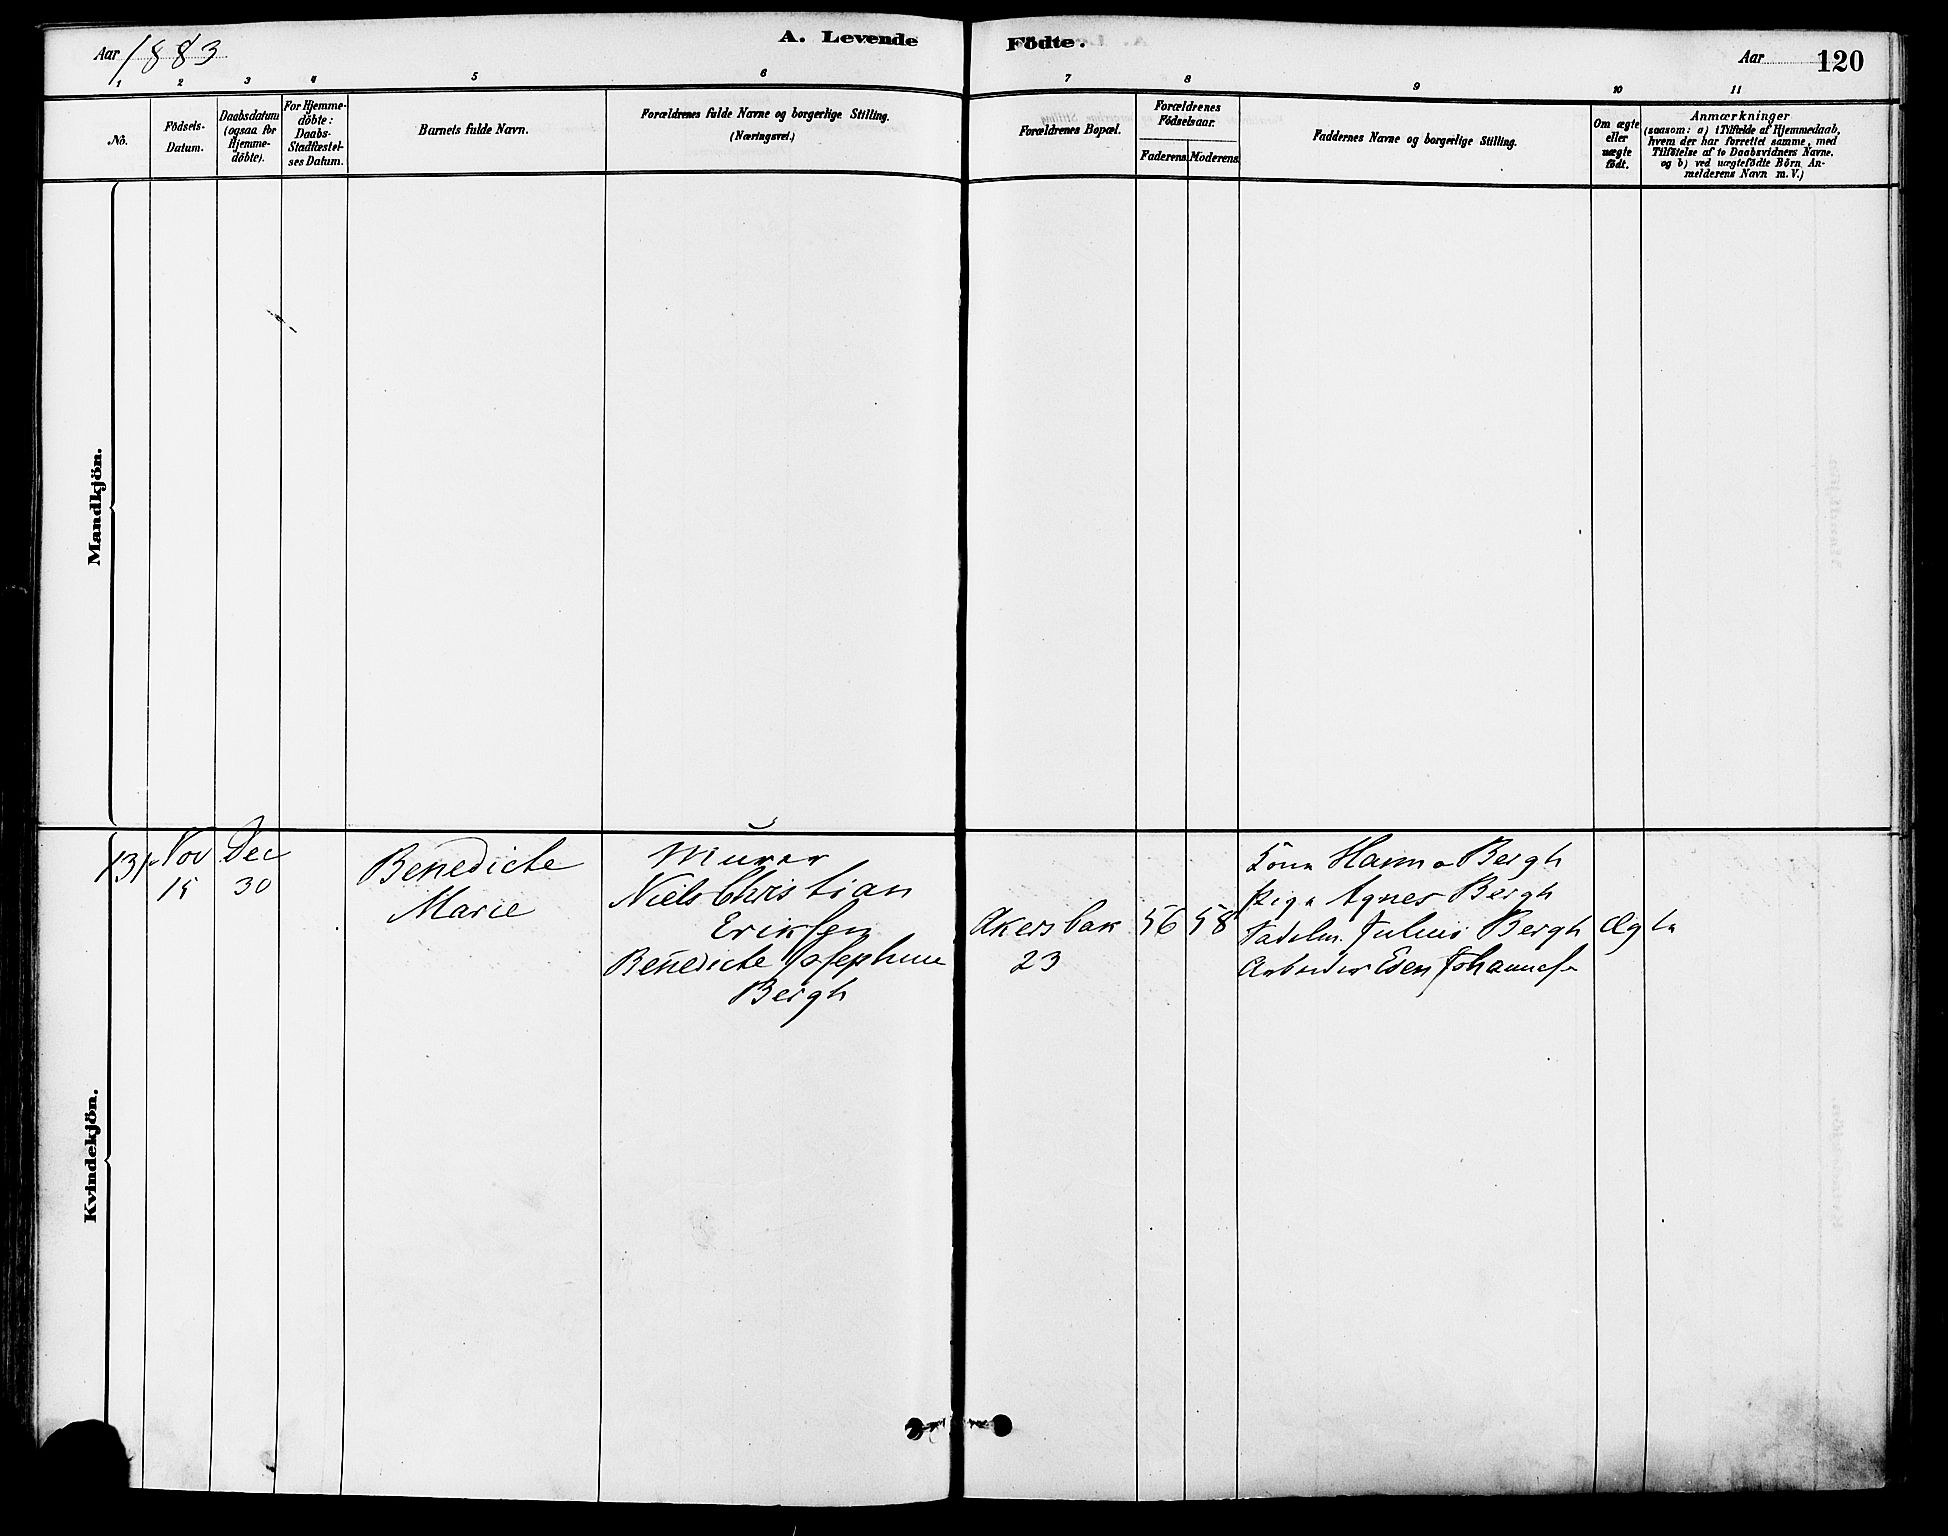 Aar 1883
A. Levende Födte.
Aar 120
1 2 3 4 5 6 7 8 9 10 11
No.
Födsels-
Datum.
Daabsdatum
(ogsaa for
Hjemme-
döbte).
For Hjemme-
döbte:
Daabs-
Stadfæstel-
ses Datum.
Barnets fulde Navn.
Forældrenes fulde Navne og borgerlige Stilling.
(Næringsvei.)
Forældrenes Bopæl.
Forældrenes
Födselsaar.
Faderens. Moderens.
Faddernes Navne og borgerlige Stilling.
Om ægte
eller
uægte
födt.
Anmærkninger
(saasom: a) i Tilfælde af Hjemmedaab,
hvem der har forrettet samme, med
Tilföielse af to Daabsvidners Navne.
og b) ved uægtefödte Börn An-
melderens Navn m. V.)
Mandkjön.
Kvindekjön.
131
Nov
15
Dec
30
Benedicte
Marie
Murer
Niels Christian
Eriksen
Benedicte Josephine
Bergh
Akersbak
23
56
58
Hanna Bergh
Pige Agnes Bergh
Julius Bergh
Arbeider Johannes
Ægte